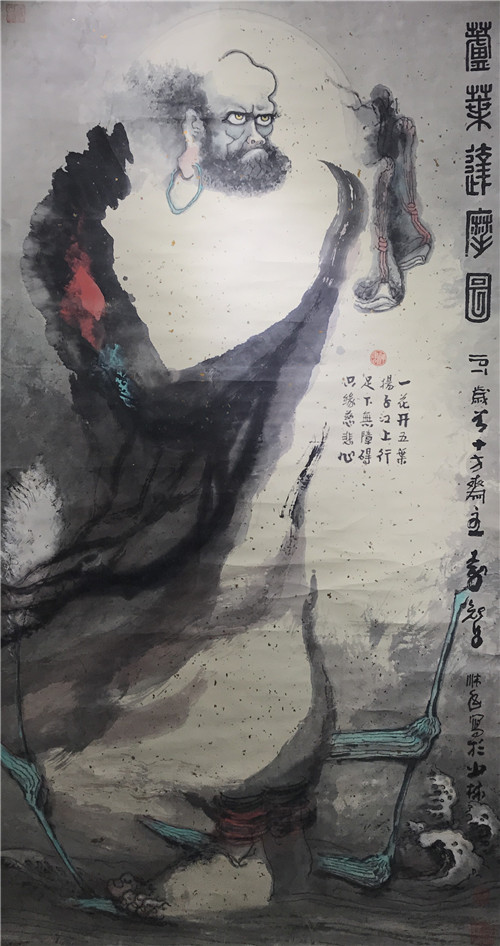 蘆葉達摩圖
歲 十方齋主 寫於少林
一花开五葉
揚子江上行
足下無障碍
只緣慈悲心